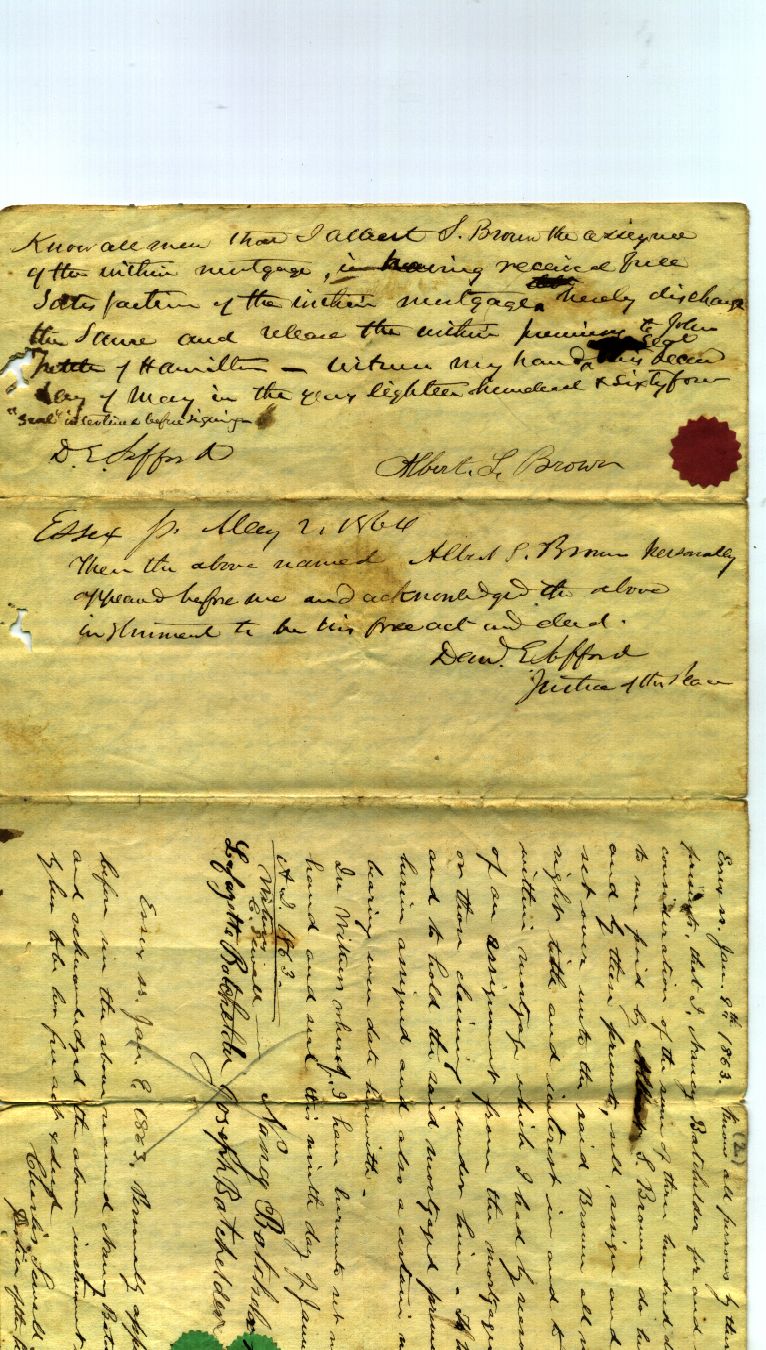 Know all men that I Albert S. Brown the assignee
of the within mortgage, having received full
Satisfaction of the within mortgage hereby discharge
the same and release the within premises to John
of Hamilton — witness my hand & seal this second
day of May in the year Eighteen hundred & Sixty four
"Seal" inserted before signing
D. E. Safford
Albert S. Brown
Essex ss. May 2, 1864
Then the above named Albert S. Brown personally
appeared before me and acknowledged the above
instrument to be his free act and deed.
Danl. E. Safford
Justice of the Peace
(2)
Essex ss. Jan. 9th 1863. Know all persons by these
presents, that I, Nancy Batchelder for and
consideration of the sum of three hundred
to me paid by Albert S. Brown do
and by these presents, sell, assign and
set over unto the said Brown all
right title and interest in and to
within mortgage which I had by
of an assignment from the mortgagee
or those claiming under him — To
and to hold the said mortgaged
herein assigned and also a certain
bearing even date herewith —
In Witness whereof, I have hereunto set
hand and seal this ninth day of
A.D. 1863 —
Witness
Sewall
Nancy Batchelder
Lafayette Batchelder Joseph Batchelder
Essex ss. Jan 9, 1863, Personally
before me the above named Nancy
and acknowledged the above instrument
by her to be her free act & deed
Charles Sewall
Justice of the